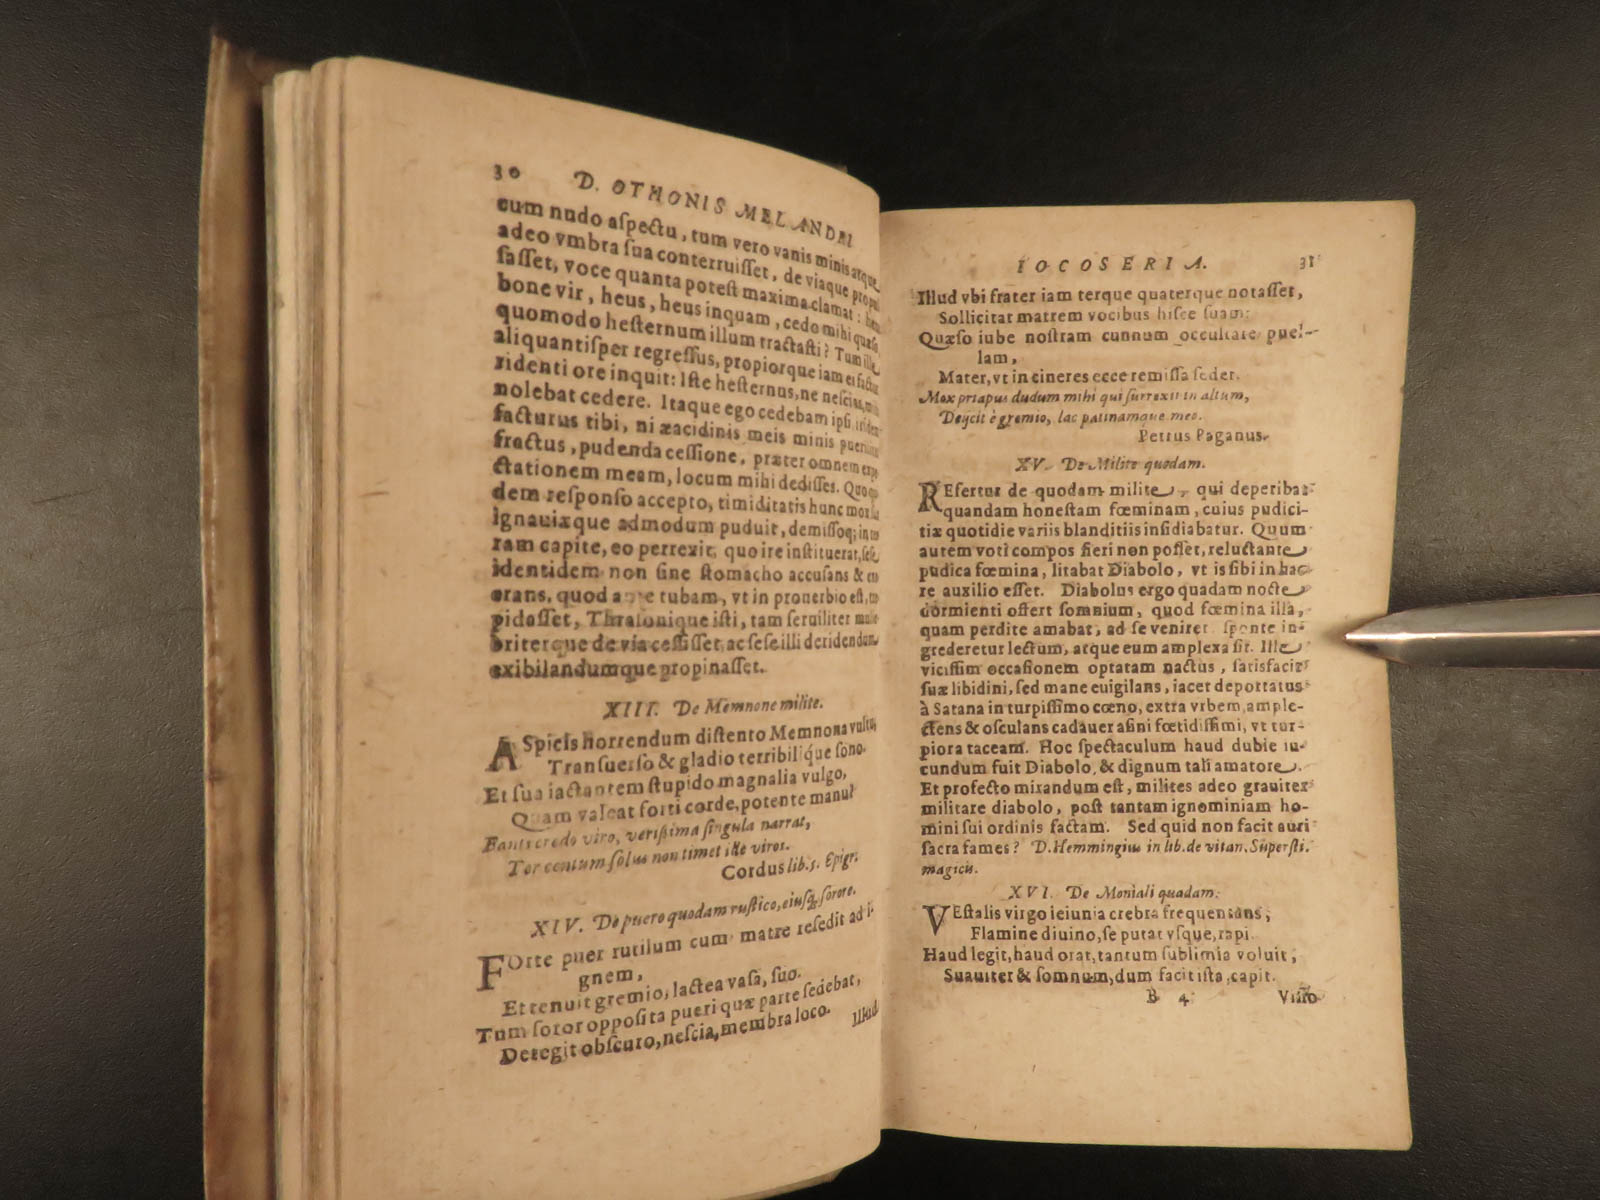 30 D. OTHONIS MELANDRI
cum nudo aſpectu, tum vero vanis minis atque
adeo vmbra ſua conterruiſſet, de viaque propul
ſaſſet, voce quanta poteſt maxima clamat: heus
bone vir, heus, heus inquam, cedo mihi quæſo,
quomodo heſternum illum tractaſti? Tum ille
aliquantiſper regreſſus, propiorque iam ei factus
ridenti ore inquit: Iſte heſternus, ne neſcius,
nolebat cedere. Itaque ego cedebam ipſi,
facturus tibi, ni æacidinis meis minis
fractus, pudenda ceſſione, præter omnem
ctationem meam, locum mihi dediſſes. Quo
dem reſponſo accepto, timiditatis hunc mox
ignauiæque admodum puduit, demiſſoq; in
ram capite, eo perrexit, quo ire inſtituerat, ſeſe
identidem non ſine ſtomacho accuſans &
orans, quod ante tubam, vt in prouerbio eſt,
pidaſſet, Thraſonique iſti, tam ſeruiliter
briterque de via ceſſiſſet, ac ſeſe illi deridendum
exibilandumque propinaſſet.
XIII. De Memnone milite.
ASpicis horrendum diſtento Memnona vultu,
Tranſuerſo & gladio terribilique ſono.
Et ſua iactantem ſtupido magnalia vulgo,
Quam valeat forti corde, potente manu?
Fanti credo viro, verißima ſingula narrat,
Ter centum ſolus non timet ille viros.
Cordus lib. 5. Epigr.
XIV. De puero quodam ruſtico, eiuſq́; ſorore.
FOrte puer rutilum cum matre reſedit ad i-
gnem,
Et tenuit gremio, lactea vaſa, ſuo.
Tum ſoror oppoſita pueri quæ parte ſedebat,
Detegit obſcuro, neſcia, membra loco.
Illud
IOCOSERIA. 31
Illud vbi frater iam terque quaterque notaſſet,
Sollicitat matrem vocibus hiſce ſuam:
Quæſo iube noſtram cunnum occultare puel-
lam,
Mater, vt in cineres ecce remiſſa ſedet.
Mox priapus dudum mihi qui ſurrexit in altum,
Deijcit è gremio, lac patinamque meo.
Petrus Paganus.
XV. De Milite quodam.
REfertur de quodam milite, qui deperibat
quandam honeſtam fœminam, cuius pudici-
tiæ quotidie variis blanditiis inſidiabatur. Quum
autem voti compos fieri non poſſet, reluctante
pudica fœmina, litabat Diabolo, vt is ſibi in hac
re auxilio eſſet. Diabolus ergo quadam nocte
dormienti offert ſomnium, quod fœmina illa,
quam perdite amabat, ad ſe veniret ſponte in-
grederetur lectum, atque eum amplexa ſit. Ille
viciſſim occaſionem optatam nactus, ſatisfacit
ſuæ libidini, ſed mane euigilans, iacet deportatus
à Satana in turpiſſimo cœno, extra vrbem, ample-
ctens & oſculans cadauer aſini fœtidiſſimi, vt tur-
piora taceam. Hoc ſpectaculum haud dubie iu-
cundum fuit Diabolo, & dignum tali amatore.
Et profecto mirandum eſt, milites adeo grauiter
militare diabolo, poſt tantam ignominiam ho-
mini ſui ordinis factam. Sed quid non facit auri
ſacra fames? D. Hemmingius in lib. de vitan. Superſti.
magicis.
XVI. De Moniali quadam.
VEſtalis virgo ieiunia crebra frequentans,
Flamine diuino, ſe putat vſque, rapi.
Haud legit, haud orat, tantum ſublimia voluit,
Suauiter & ſomnum, dum facit iſta, capit.
B 4 Viſio